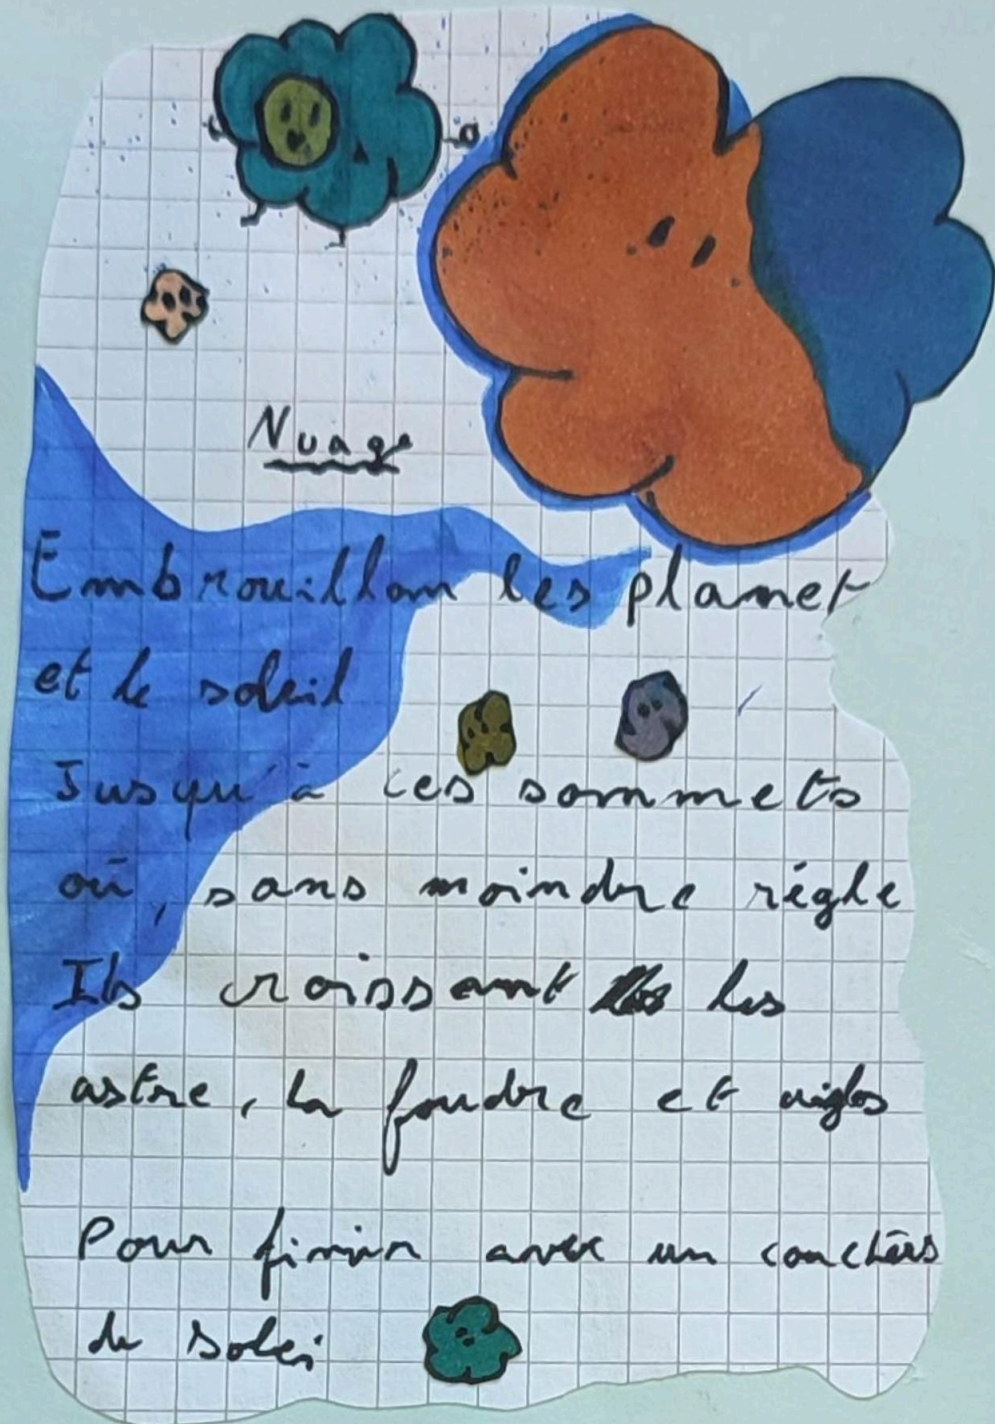 Nuage
Embrouillan les planet
et le soleil
Jusqu'à ces sommets
où, sans moindre régle
Ils croissent les
astre, la foudre et aigles
Pour finir avec un couchérs
de solei